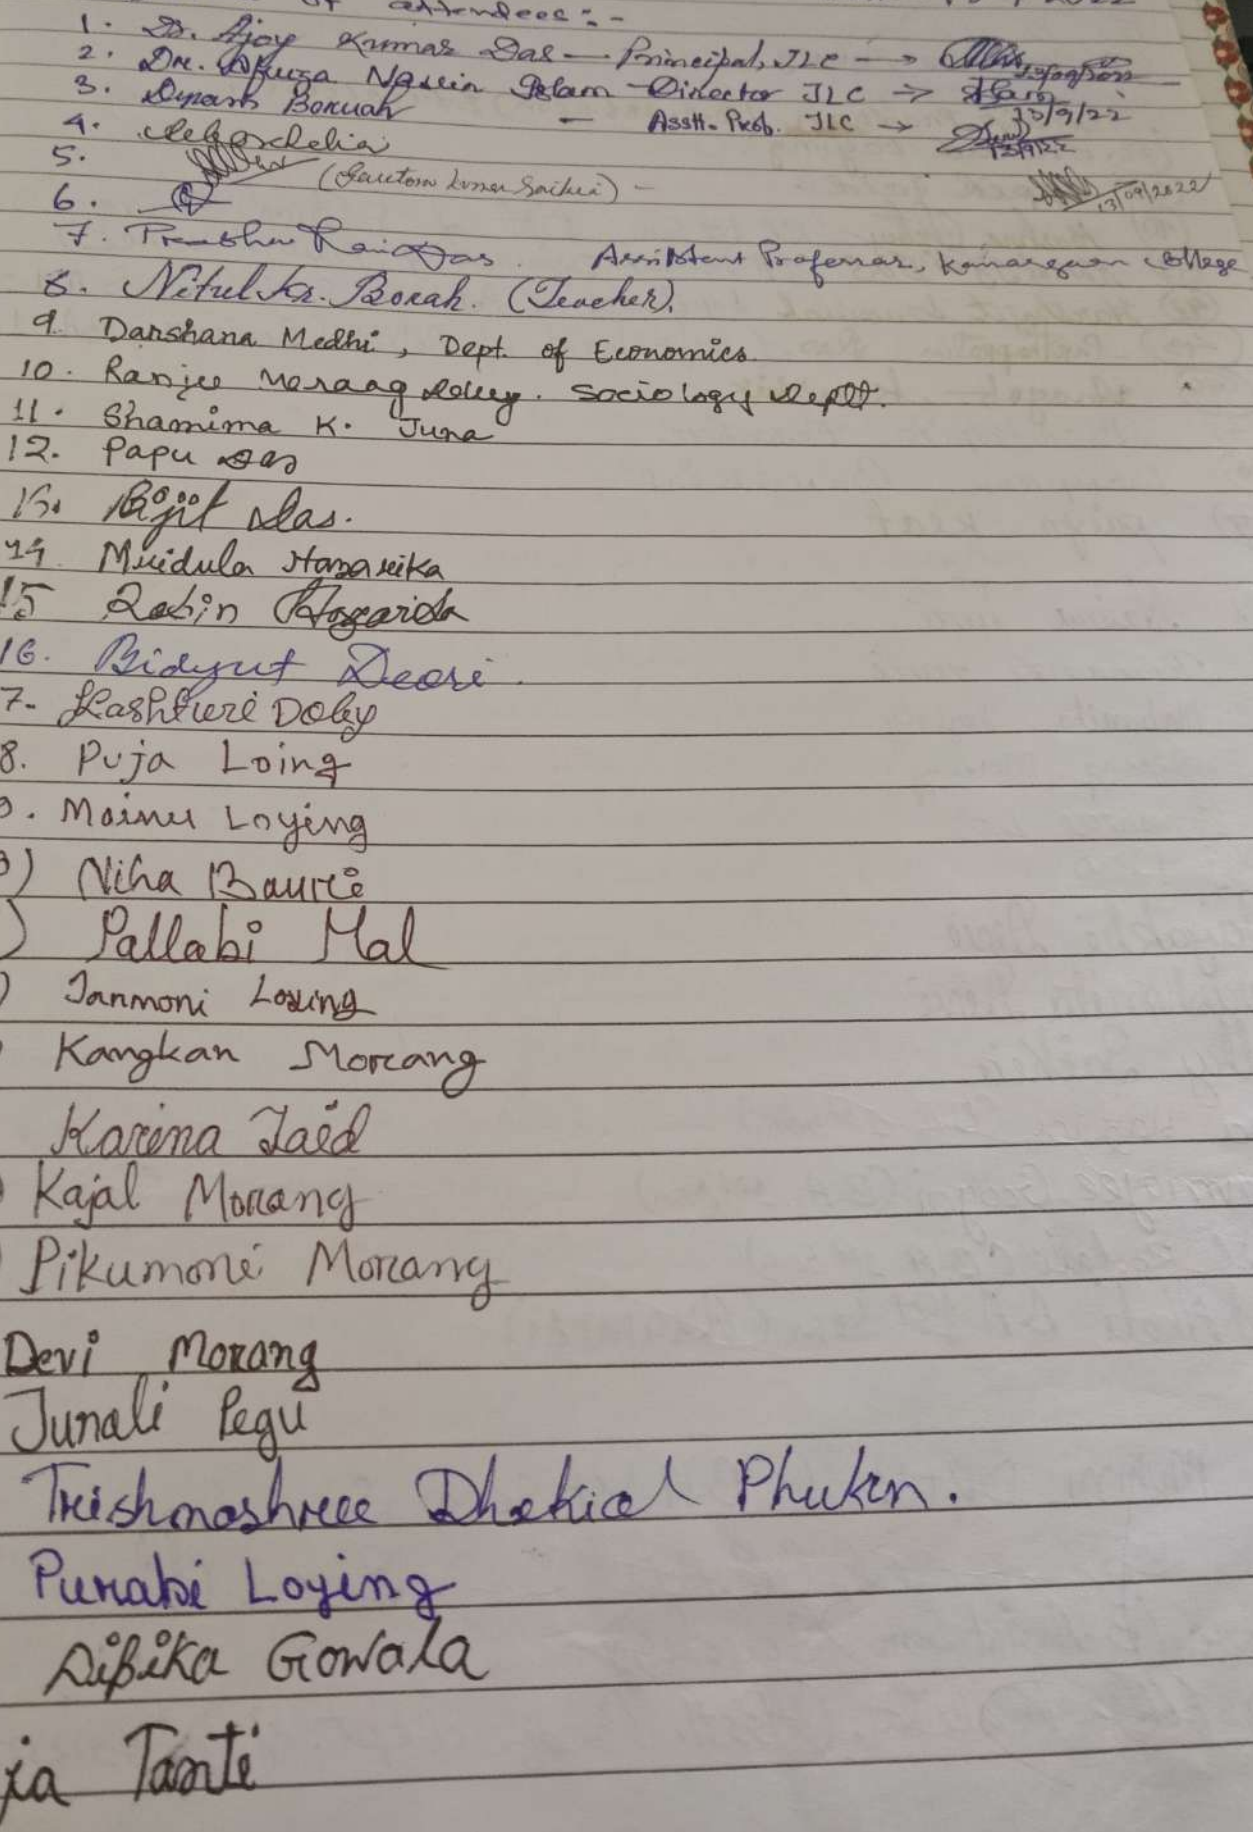 attendees :-
1. Dr. Ajoy Kumar Das — Principal, JLC →
2. Dr. Nasrin Islam - Director JLC →
3. Dipash Boruah - Asstt. Prof. JLC → 13/9/22
4.
5. (Gautom kumar Saikia) - 13/09/2022
6.
7. Prabhu Rai Das. Assistant Professor, College
8. Nitul Kr. Borah. (Teacher).
9. Darshana Medhi, Dept. of Economics
10. Ranjee Doley. Sociology Deptt.
11. Shamima K. Juna
12. Papu Das
13. Bijit Das.
14. Mridula Hazarika
15 Robin Hazarika
16. Bidyut Deori.
7- Kashturi Doley
8. Puja Loing
9. Mainu Loying
) Niha Bauri
) Pallabi Mal
) Janmoni Loying
Kangkan Morang
Karina Zaid
Kajal Morang
Pikumoni Morang
Devi Morang
Junali Pegu
Trishmashree Dhekial Phukan.
Purabi Loying
Dipika Gowala
ia Tanti